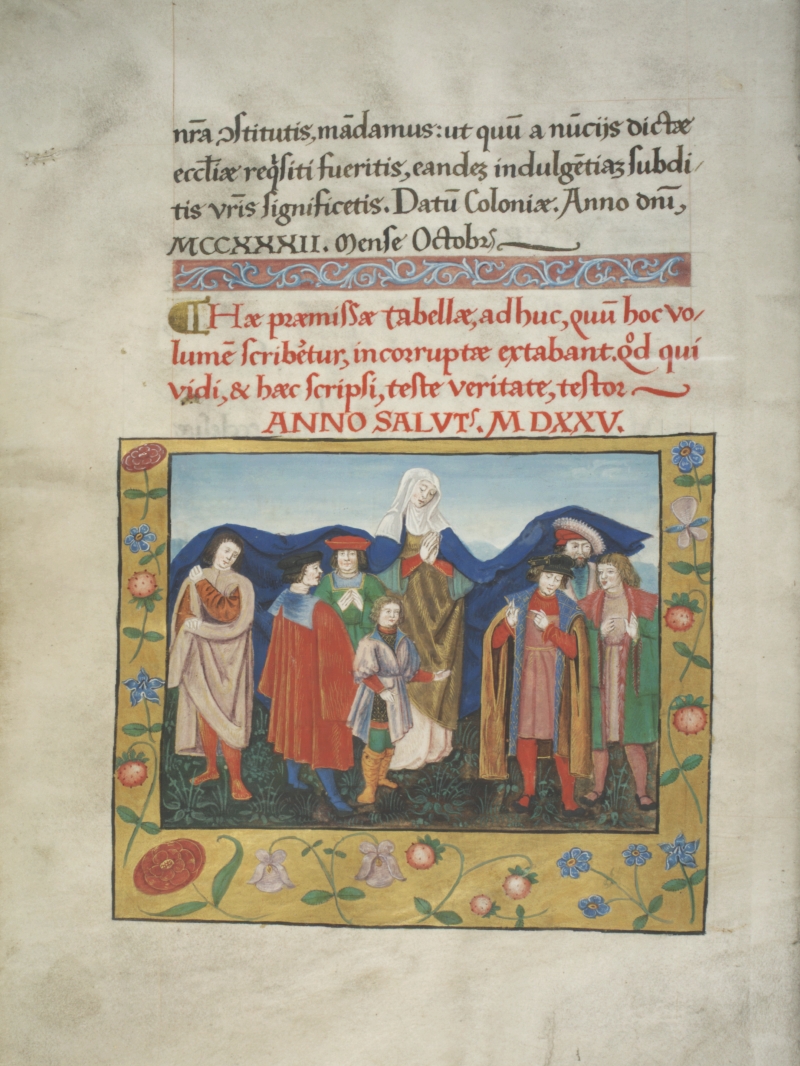 nr̃a ↄstitutis, mādamus: ut quū a nūcijs dictæ
eccl̃iæ reqͥsiti fueritis, eandeȝ indulgētiaȝ subdi/
tis vr̃is significetis. Datū Coloniæ. Anno dnī,
MCCXXXII. Mense Octobrꝭ
¶ Hæ præmissæ tabellæ, ad huc, quū hoc vo/
lumē scribe͛tur, incorruptæ extabant. qͦd qui
vidi, & hæc scripsi, teste veritate, testor
ANNO SALVTꝭ. M DXXV.